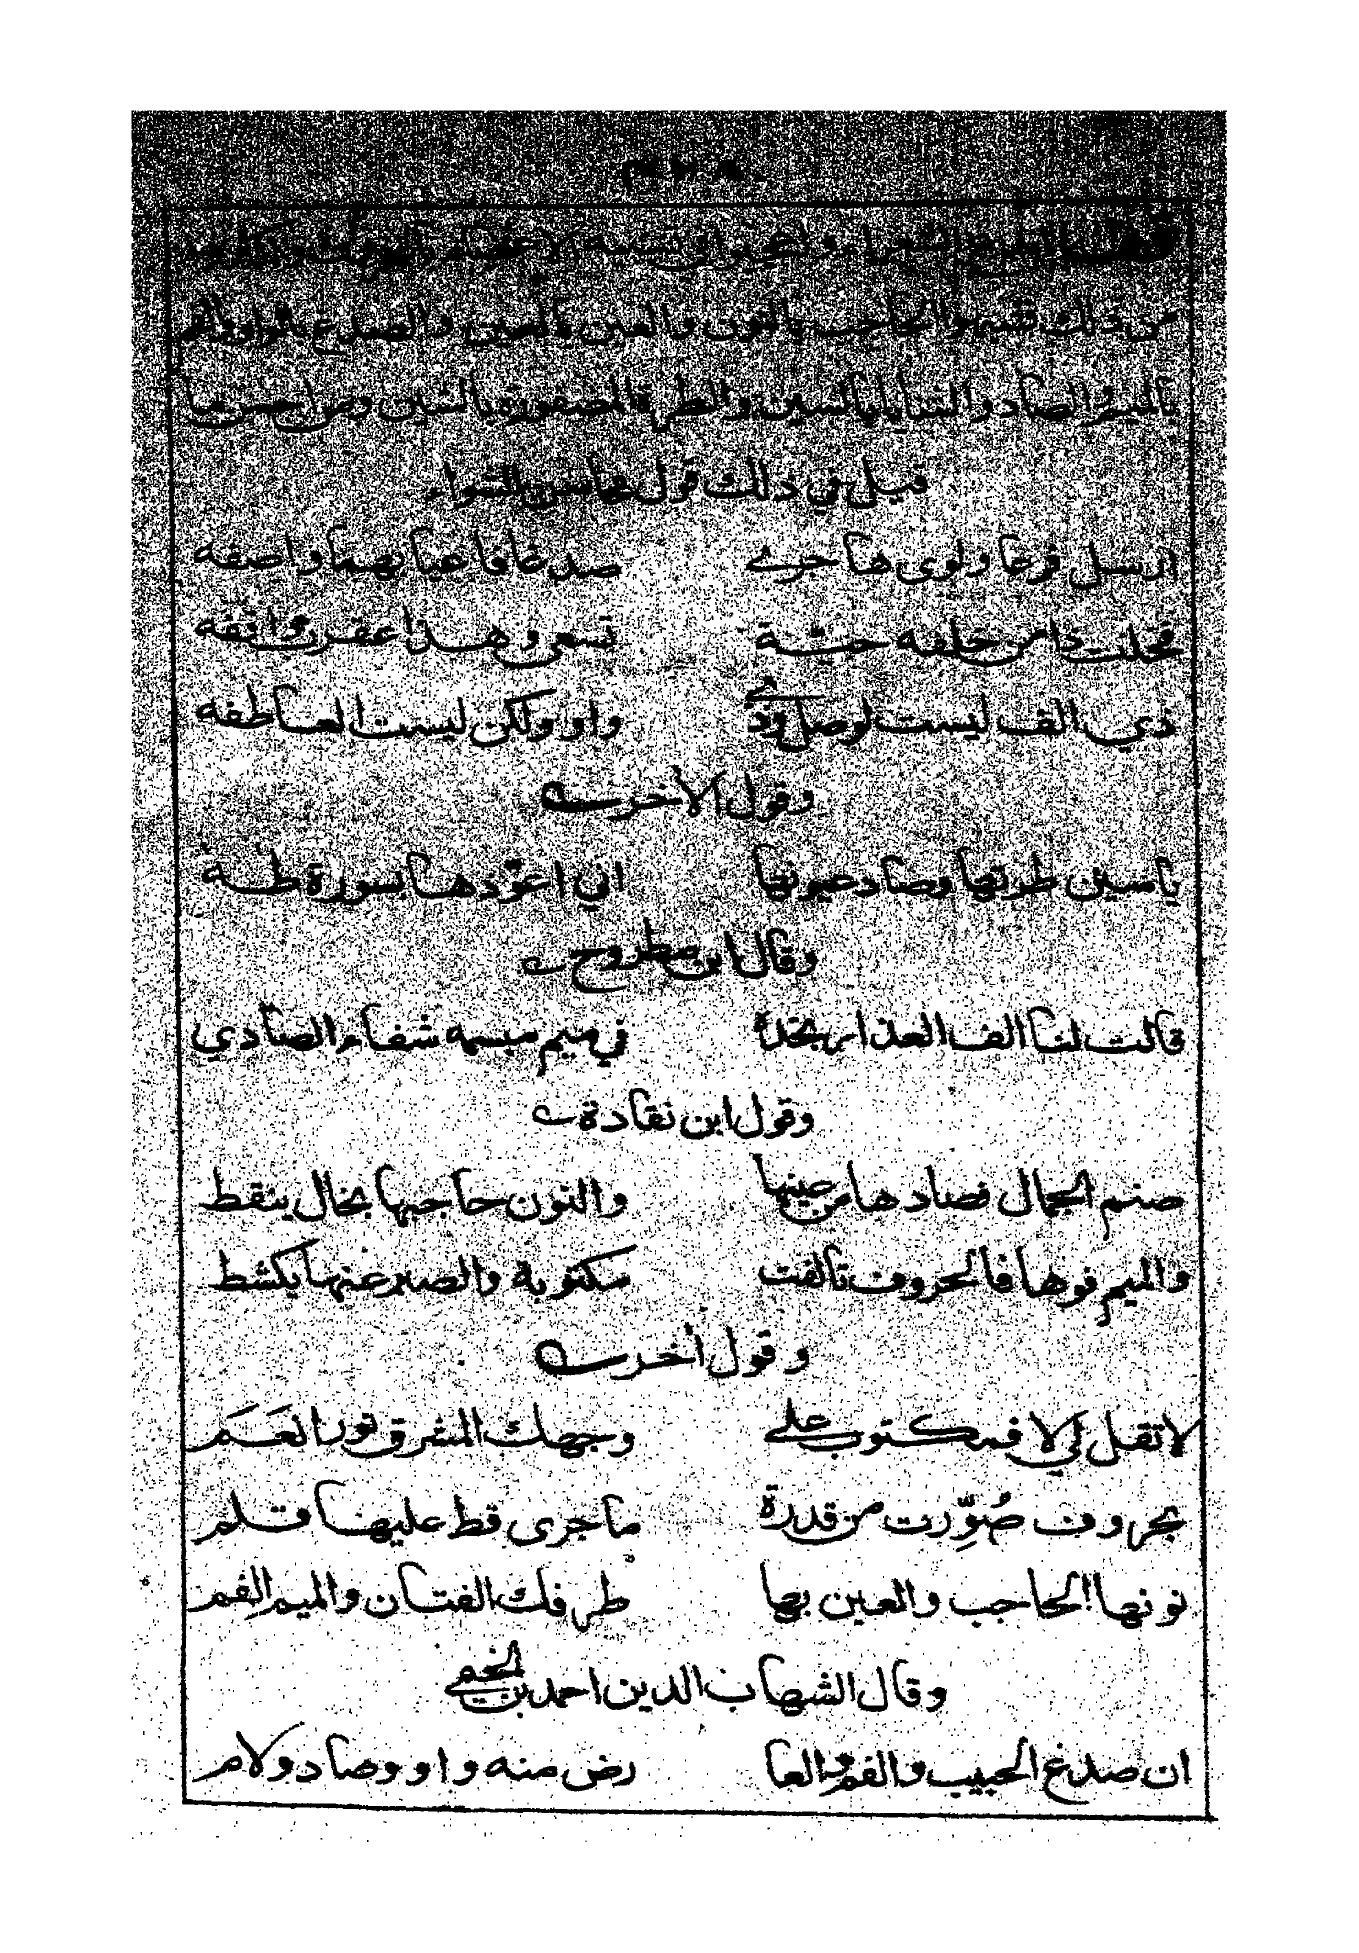 من ذلك فقيه والحاجب بالنون والعين بالعين والصدغ بالواو والفم
بالميم والصاد والثنايا بالسين والطرة المضفورة بالشين ومن احسن ما
قيل في ذلك قول محاسن الشواء
ارسل فرعا ولوى هاجري صدغا فاعيا بهما واصفه
فخلت ذا من خلفه حية تسعى وهذا عقربا واقفه
ذي الف ليست لوصل وذي واو ولكن ليست العاطفه
وقول الاخر
ياسين طرتها وصاد عيونها اني اعوّدها بسورة طه
وقال ابن مطروح
قالت لنا الف العذار بخده في ميم مبسمه شفاء الصادي
وقول ابن نقادة
صنم الجمال فصادها من عينها والنون حاجبها بخال ينقط
والميم فوها فالحروف تالفت مكتوبة والصبر عنها يكشط
وقول أخر
لا تقل لي لا فمكتوب على وجهك المشرق نور العَمَ
بحروف صُوِّرت من قدرة ما جرى قط عليها قلم
نونها الحاجب والعين بها طرفك الفتان والميم الفم
وقال الشهاب الدين احمد بن الخيمي
ان صدغ الحبيب والفم والعا رض منه واو وصاد ولام